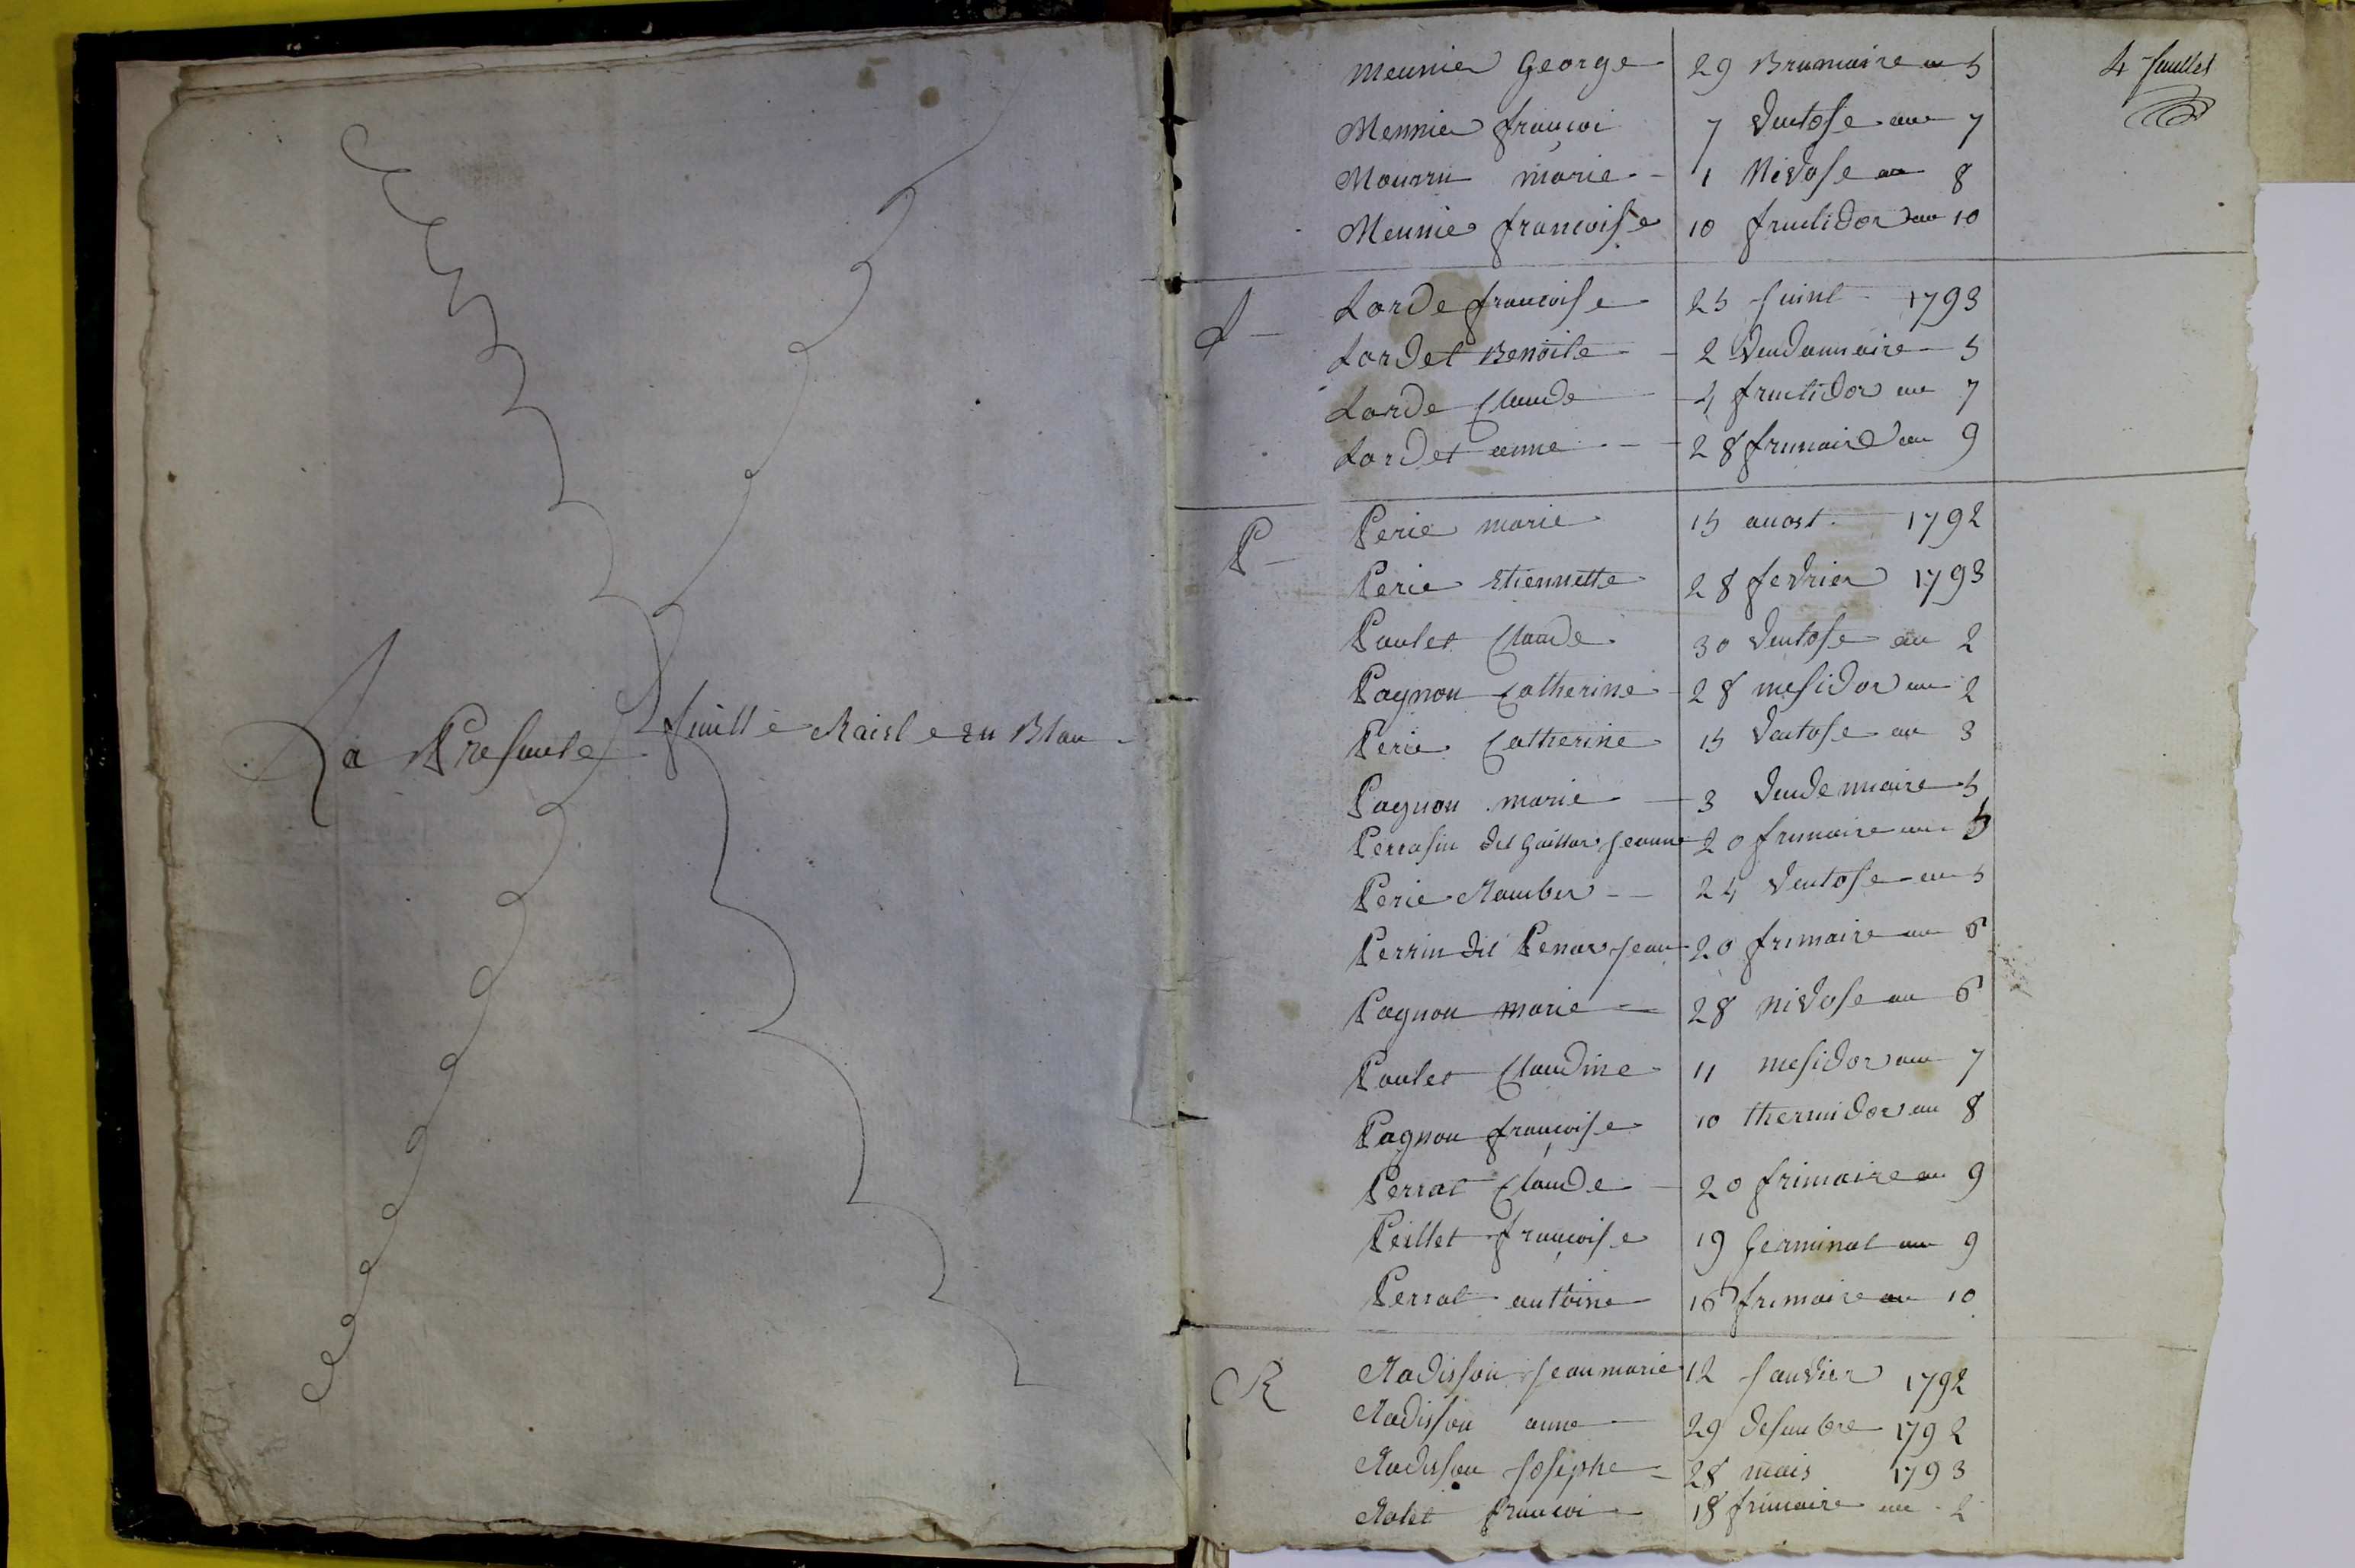 La Presente feuille Raiste en Blan
4 feuillet
Meunier George 29 Brumaire an 5
Meunier françoi 7 Ventose an 7
Mourru marie 1 Nivose an 8
Meunier françoise 10 fructidor an 10
L
Larde francoise 25 Juint 1793
Lardet Benoite 2 Vendanmaire 5
Larde Claude 4 fructidor an 7
Lardet anne 28 frimaire an 9
P
Perie marie 15 auost 1792
Perie Etiennette 28 fevrier 1793
Paulet Claude 30 Ventose an 2
Pagnon Catherine 28 mesidor an 2
Perie Catherine 15 Ventose an 3
Pagnon marie 3 Vendemiaire 5
Perrasin dit Gaillar Jeanne 20 frimaire an 5
Perie Ramber 24 Ventose an 5
Perrin dit Penar Jean 20 frimaire an 6
Pagnon marie 28 Nivose an 6
Paulet Claudine 11 mesidor an 7
Pagnon françoise 10 thermidor an 8
Perrat Claude 20 frimaire an 9
Peillet françoise 19 Germinal an 9
Perrat antoine 16 frimaire an 10
R
Radisson Jean marie 12 Janvier 1792
Radisson anne 29 desenbre 1792
Radisson Josephe 28 mais 1793
Rolet francoi 18 frimaire an 2